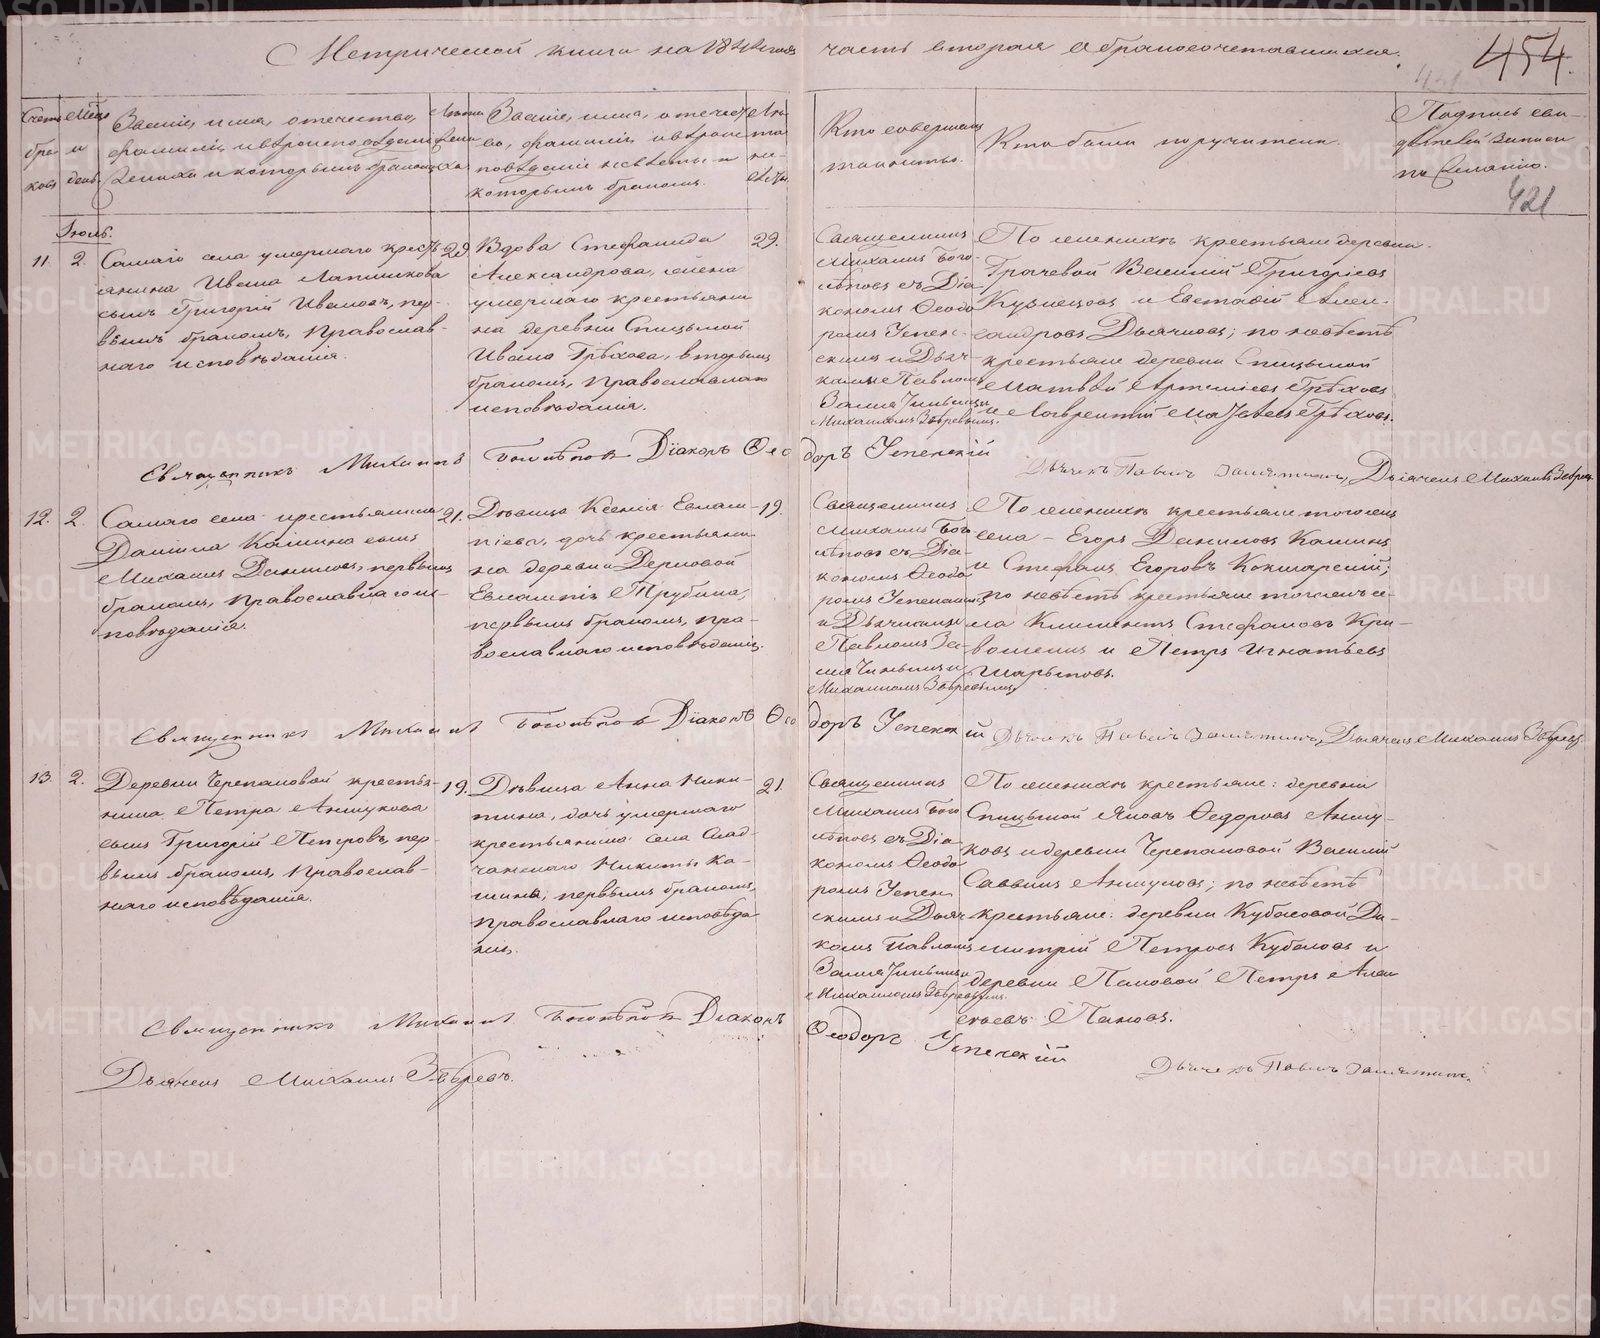 Метрической книги на 18 года часть вторая о бракосочетавшихся.
454.
421
Счетъ браковъ
Мѣсяцъ и день
Званіе, имя, отечество,
фамилія и вѣроисповѣданіе
жениха и которымъ бракомъ
Лѣта жениха
Званіе, имя, отечест-
во, фамилія и вѣроис-
повѣданіе невѣсты и
которымъ бракомъ.
Лѣ-
та
не-
вѣсты
Кто совершалъ
таинство.
Кто были поручители.
Подпись сви-
дѣтелей записи
по желанію.
Іюль.
11. 2.
Самаго села умершаго кресть-
янина Ивана Лапшикова
сынъ Григорій Ивановъ, пер-
вымъ бракомъ, Православ-
наго исповѣданія.
29.
Вдова Стефанида
Александрова, жена
умершаго крестьяни-
на деревни Спицыной
Ивана Грѣхова, вторымъ
бракомъ, православнаго
исповѣданія.
29.
Священникъ
Михаилъ Бого-
лѣповъ съ Діа-
кономъ Ѳеодо-
ромъ Успен-
скимъ и Дьяч-
ками Павломъ
Замятинымъ и
Михаиломъ Звѣревымъ.
По женихѣ крестьяне деревни
Грачевой Василій Григорьевъ
Кузнецовъ и Евстафій Алек-
сандровъ Дьячковъ; по невѣстѣ
крестьяне деревни Спицыной
Матвѣй Артемьевъ Грѣховъ
и Лаврентій Матвѣевъ Грѣховъ.
Священникъ Михаилъ Боголѣповъ Діаконъ Ѳеодоръ Успенскій
Дьячекъ Павелъ Замятинъ, Дьячекъ Михаилъ Звѣревъ
12. 2.
Самаго села крестьянина
Даніила Кашина сынъ
Михаилъ Даниловъ, первымъ
бракомъ, православнаго ис-
повѣданія.
21.
Дѣвица Ксенія Евлам-
піева, дочь крестьяни-
на деревни
Евлампія Трубина,
первымъ бракомъ, пра-
вославнаго исповѣданія.
19.
Священникъ
Михаилъ Бого-
лѣповъ съ Діа-
кономъ Ѳеодо-
ромъ Успенскимъ
и Дьячками
Павломъ За-
мятинымъ и
Михаиломъ Звѣревымъ
По женихѣ крестьяне тогоже
села - Егоръ Даниловъ Кашинъ
и Стефанъ Егоровъ Кокшарскій;
по невѣстѣ крестьяне тогоже се-
ла Климентъ Стефановъ Кри-
и Петръ Игнатьевъ
Шарыповъ.
Священникъ Михаилъ Боголѣповъ Діаконъ Ѳеодоръ Успенскій
Дьячекъ Павелъ Замятинъ, Дьячекъ Михаилъ Звѣревъ
13. 2.
Деревни Черепановой крестья-
нина Петра Анчукова
сынъ Григорій Петровъ, пер-
вымъ бракомъ, Православ-
наго исповѣданія.
19.
Дѣвица Анна Ники-
тина, дочь умершаго
крестьянина села Слад-
чанскаго Никиты Ка-
шина, первымъ бракомъ,
Православнаго исповѣда-
нія.
21.
Священникъ
Михаилъ Бого-
лѣповъ съ Діа-
кономъ Ѳеодо-
ромъ Успен-
скимъ и Дьяч-
комъ Павломъ
Замятинымъ и
Михаиломъ Звѣревымъ.
По женихѣ крестьяне: деревни
Спицыной Яковъ Ѳедоровъ Анчу-
ковъ и деревни Черепановой Василій
Саввинъ Анчуковъ; по невѣстѣ
крестьяне: деревни Кубасовой Ди-
митрій Петровъ Кубасовъ и
деревни Пановой Петръ Алек-
сѣевъ Пановъ.
Священникъ Михаилъ Боголѣповъ Діаконъ Ѳеодоръ Успенскій
Дьячекъ Павелъ Замятинъ.
Дьячекъ Михаилъ Звѣревъ.
METRIKI.GASO-URAL.RU